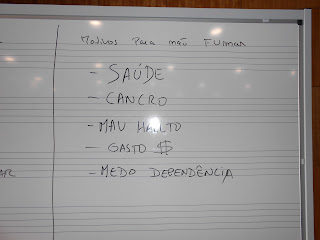 Motivos Para não Fumar
- SAÚDE
- CANCRO
- MAU HÁLITO
- GASTO $
- MEDO DEPENDÊNCIA